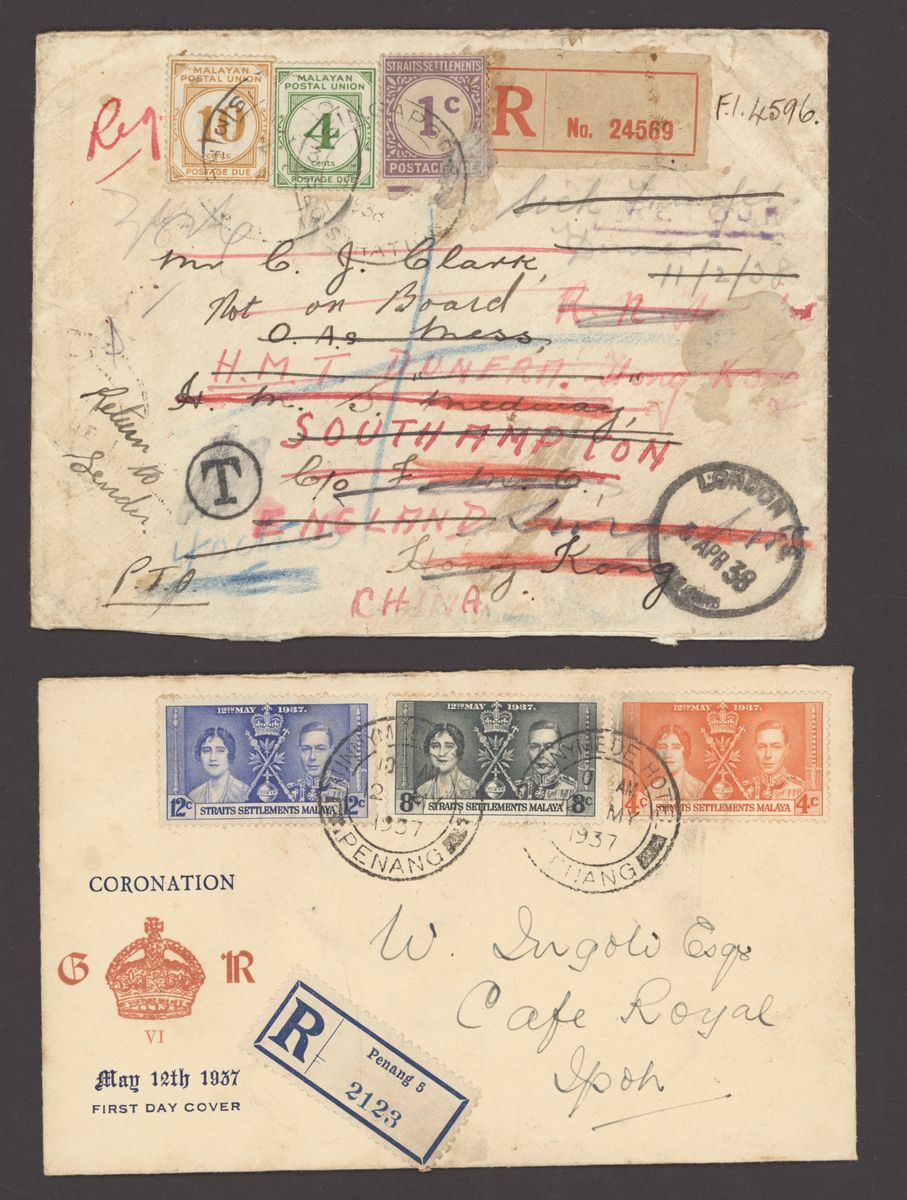 MALAYAN
POSTAL UNION
10
Cents
POSTAGE DUE
MALAYAN
POSTAL UNION
4
Cents
POSTAGE DUE
STRAITS SETTLEMENTS
1c
POSTAGE
R
No. 24569
F.I. 4596.
Reg.
1938
RETOUR
11/2/38
Mr C. J. Clark,
Not on Board R.N.
O.A.s Mess,
H.M.T. DUNERA. Hong Kong
H. M. S. Medway,
SOUTHAMPTON
T
ENGLAND
Hong Kong
CHINA
Return to
Sender.
P.T.O.
LONDON
APR 38
12TH MAY 1937.
12c 12c
STRAITS SETTLEMENTS MALAYA
12TH MAY 1937.
8c 8c
STRAITS SETTLEMENTS MALAYA
12TH MAY 1937.
4c 4c
STRAITS SETTLEMENTS MALAYA
AM
12
1937
PENANG
RUNNYMEDE HOTEL
AM
MY
1937
PENANG
CORONATION
G R
VI
May 12th 1937
FIRST DAY COVER
R
Penang 5
2123
W. Ingold Esqr
Cafe Royal
Ipoh